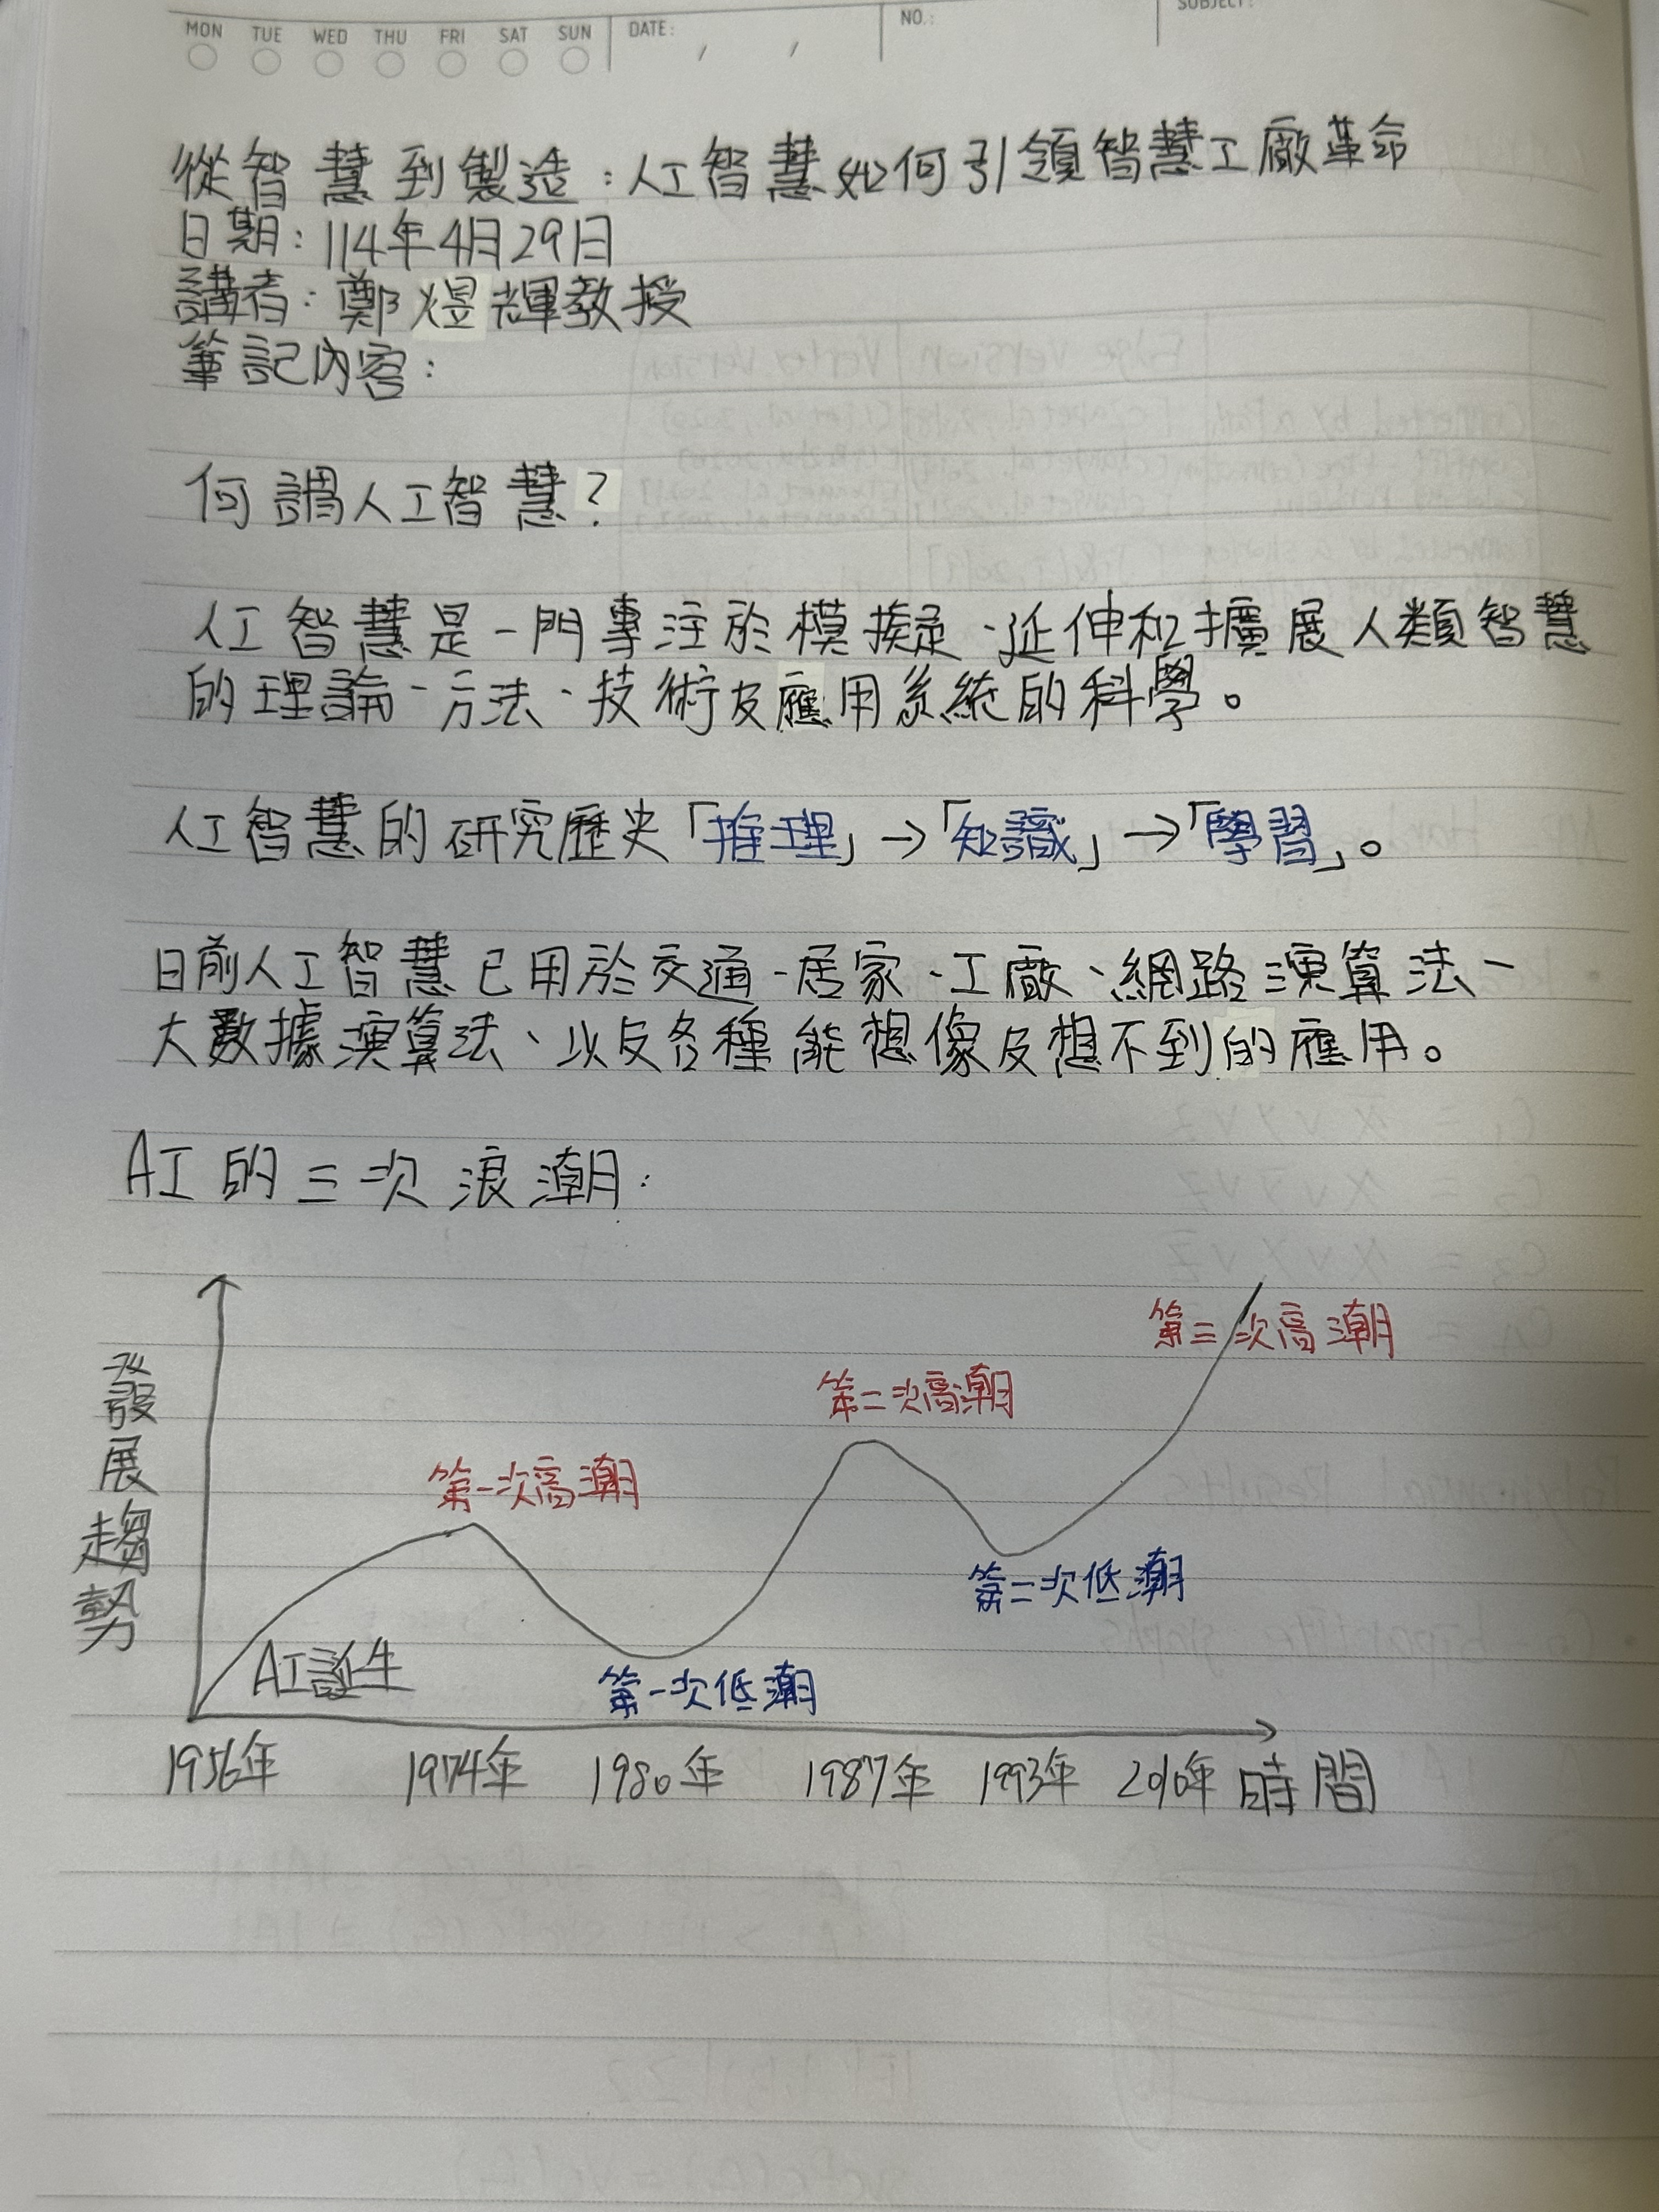 MON TUE WED THU FRI SAT SUN DATE: / / NO.: SUBJECT:
從智慧到製造：人工智慧如何引領智慧工廠革命
日期：114年4月29日
講者：鄭煜輝教授
筆記內容：
何謂人工智慧？
人工智慧是一門專注於模擬、延伸和擴展人類智慧
的理論、方法、技術及應用系統的科學。
人工智慧的研究歷史「推理」→「知識」→「學習」。
目前人工智慧已用於交通、居家、工廠、網路演算法、
大數據演算法、以及各種能想像及想不到的應用。
AI的三次浪潮：
第三次高潮
第二次高潮
第一次高潮
發展趨勢
第二次低潮
AI誕生
第一次低潮
1956年 1974年 1980年 1987年 1993年 2010年 時間